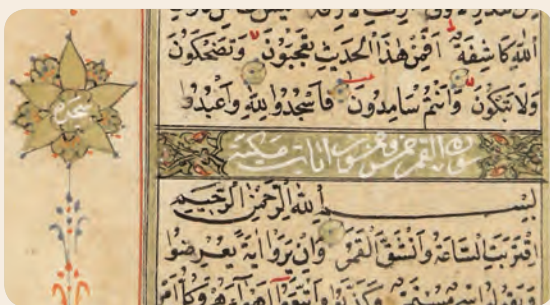 اللهِ كَاشِفَةٌ اَفَمِنْ هٰذَا الْحَدِيثِ تَعْجَبُونَ وَتَضْحَكُونَ
وَلَا تَبْكُونَ وَاَنْتُمْ سَامِدُونَ فَاسْجُدُوا لِلّٰهِ وَاعْبُدُوا
سورة القمر خمس وخمسون ايات مكية
بِسْمِ اللهِ الرَّحْمٰنِ الرَّحِيمِ
اِقْتَرَبَتِ السَّاعَةُ وَانْشَقَّ الْقَمَرُ وَاِنْ يَرَوْا اٰيَةً يُعْرِضُوا